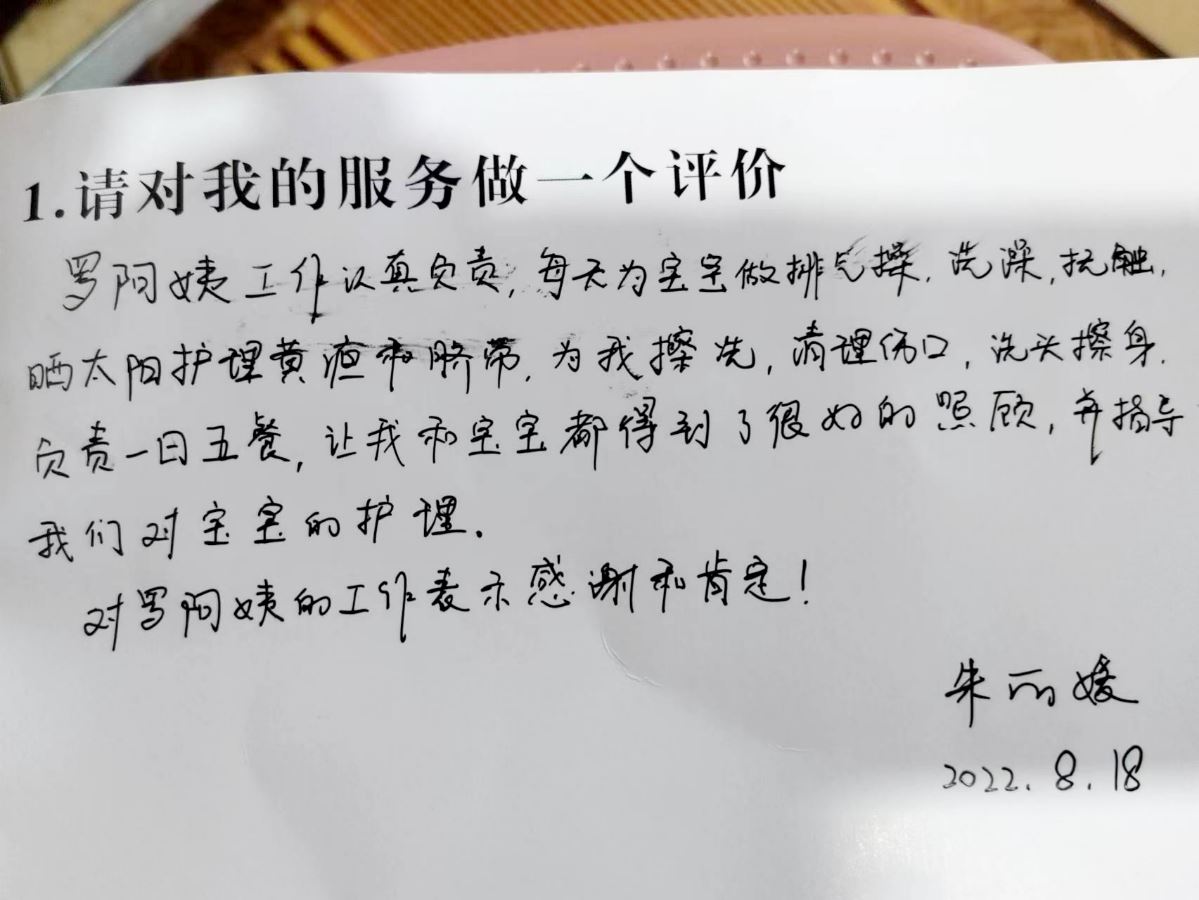 1.请对我的服务做一个评价
罗阿姨工作认真负责,每天为宝宝做排气操,洗澡,抚触,
晒太阳护理黄疸和脐带,为我擦洗,清理伤口,洗头擦身.
负责一日五餐,让我和宝宝都得到了很好的照顾,并指导
我们对宝宝的护理.
对罗阿姨的工作表示感谢和肯定!
朱丽媛
2022.8.18